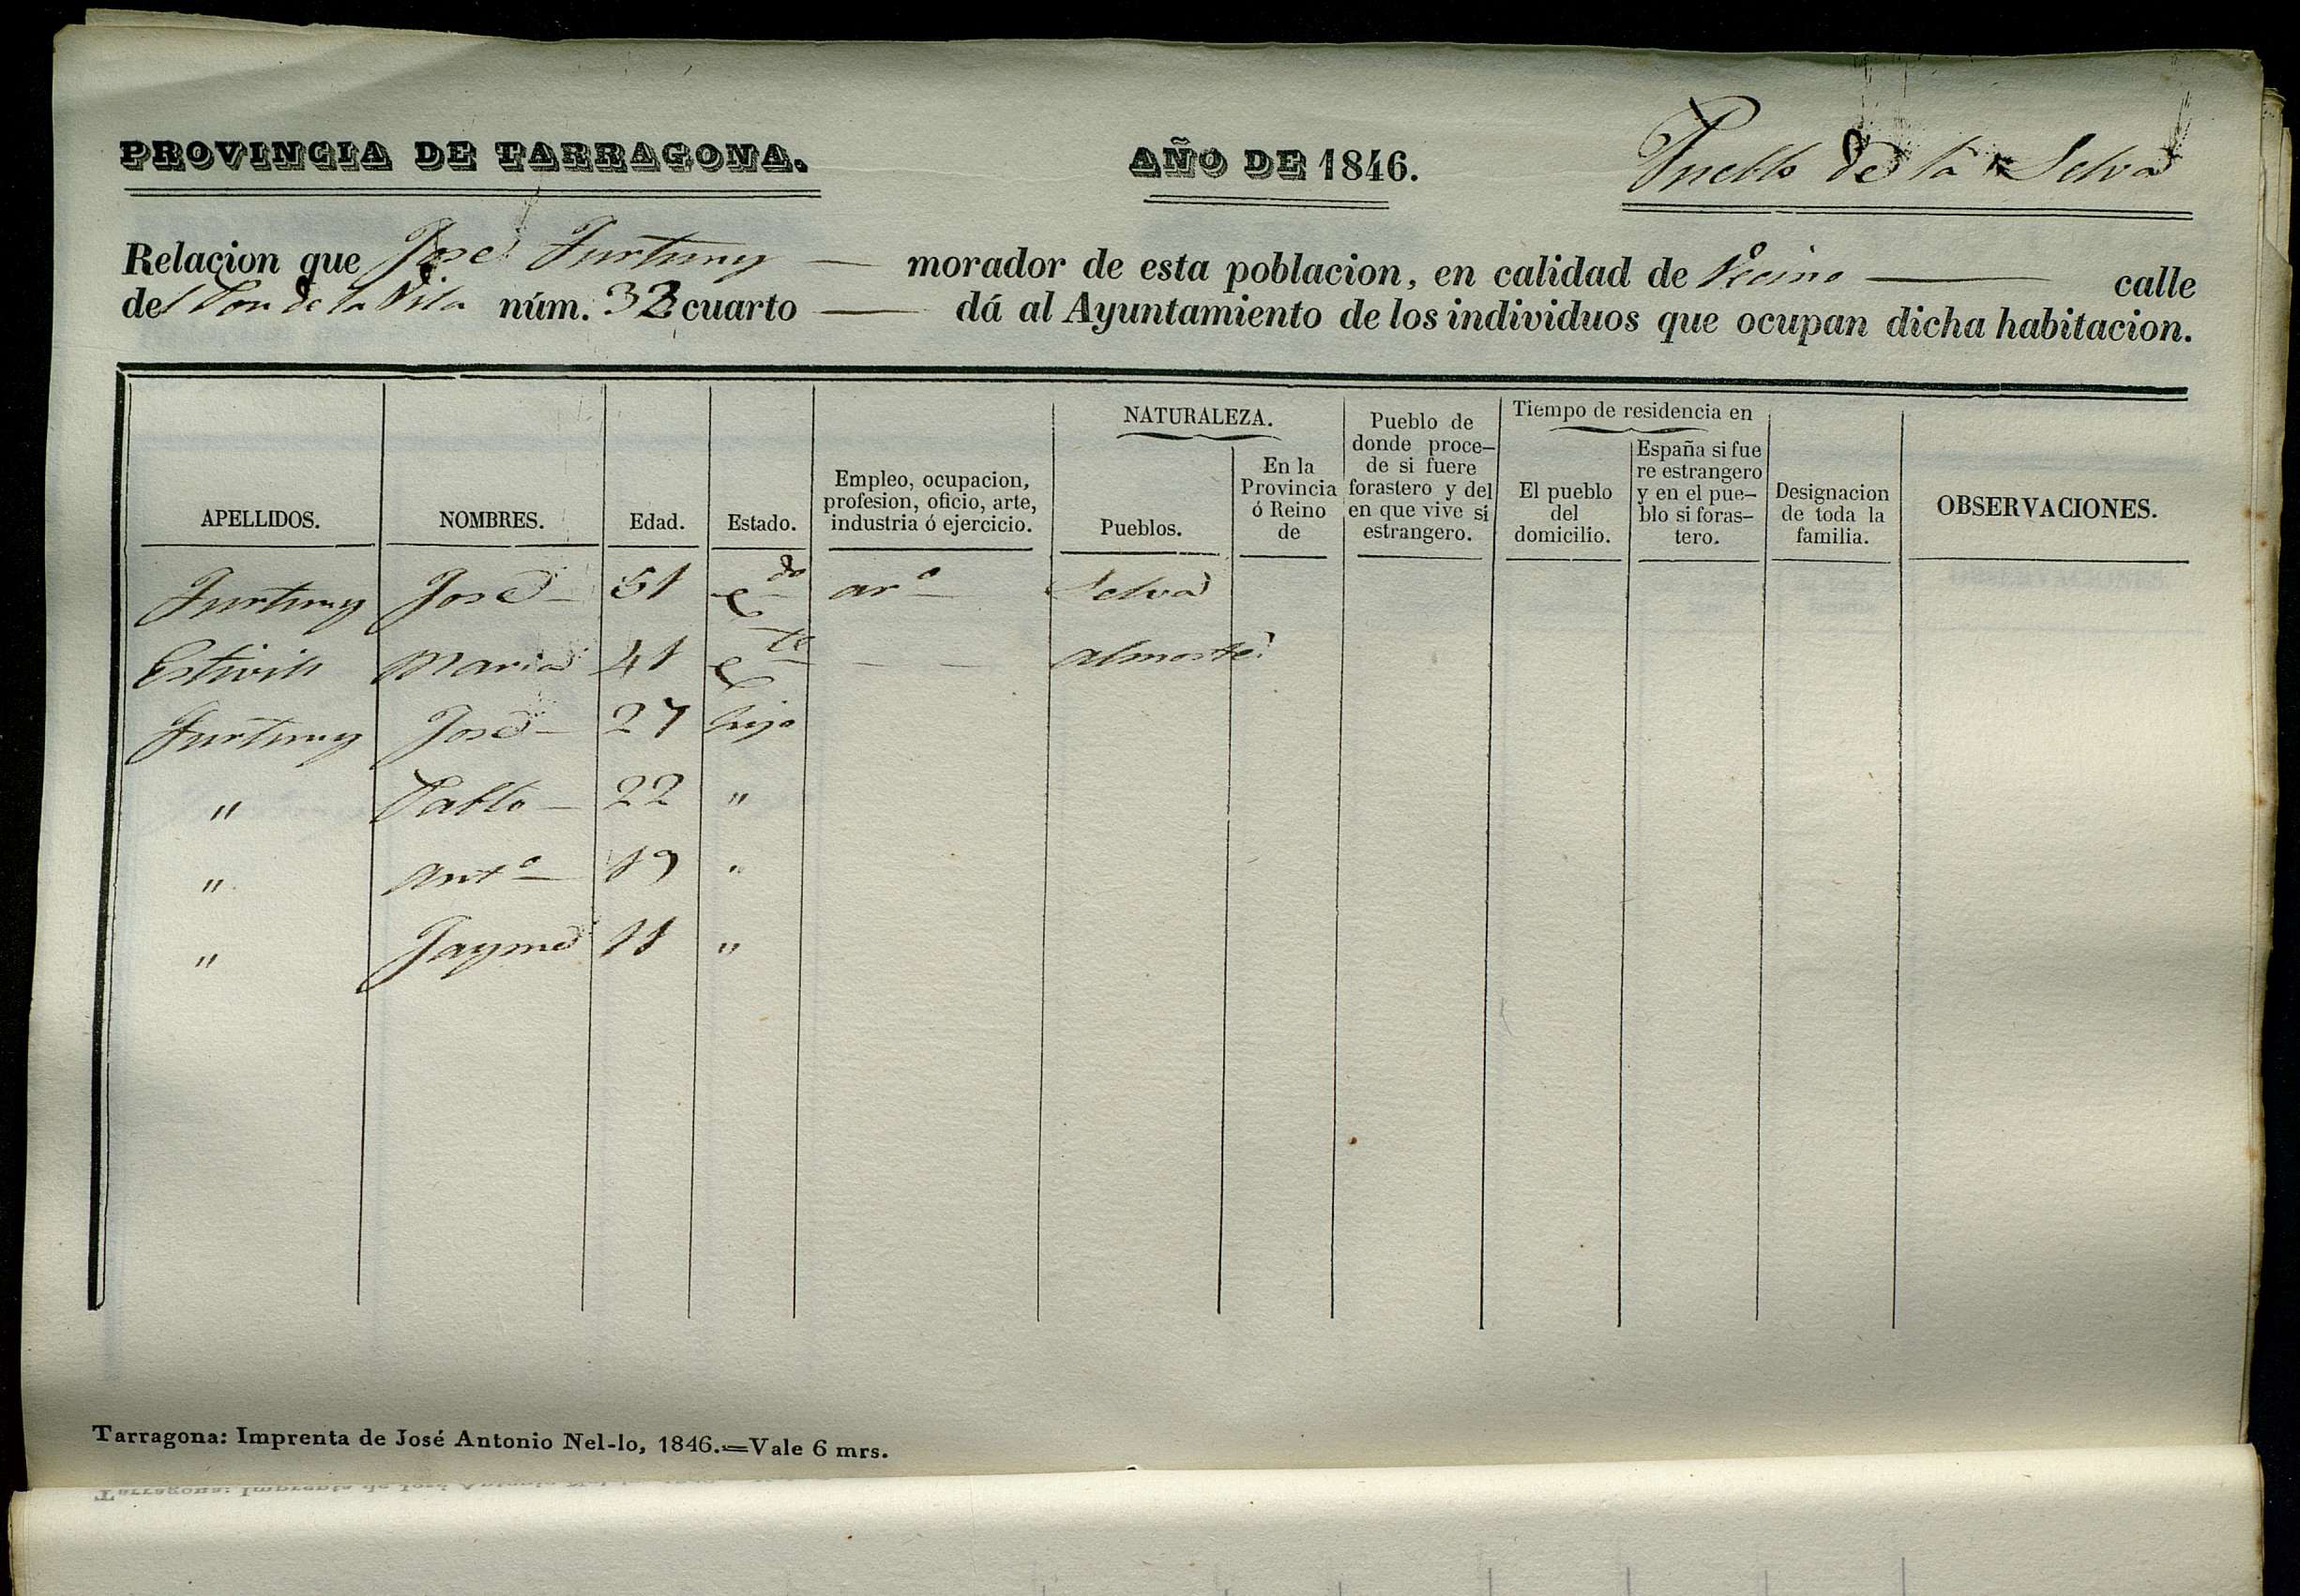 PROVINCIA DE TARRAGONA. AÑO DE 1846. Pueblo de la Selva
Relacion que José Furtuny — morador de esta poblacion, en calidad de Vecino — calle
del de la Vila núm. 32 cuarto — dá al Ayuntamiento de los individuos que ocupan dicha habitacion.
APELLIDOS. NOMBRES. Edad. Estado. Empleo, ocupacion, profesion, oficio, arte, industria ó ejercicio. NATURALEZA. Pueblos. En la Provincia ó Reino de Pueblo de donde proce-de si fuere forastero y del en que vive si estrangero. Tiempo de residencia en El pueblo del domicilio. España si fue re estrangero y en el pue-blo si foras-tero. Designacion de toda la familia. OBSERVACIONES.
Furtuny José — 51 Cdo arº Selva
Estivill Maria 41 Cda — — almoster
Furtuny José — 27 hijo
" Pablo — 22 "
" Antº 19 "
" Jayme 11 "
Tarragona: Imprenta de José Antonio Nel-lo, 1846.=Vale 6 mrs.